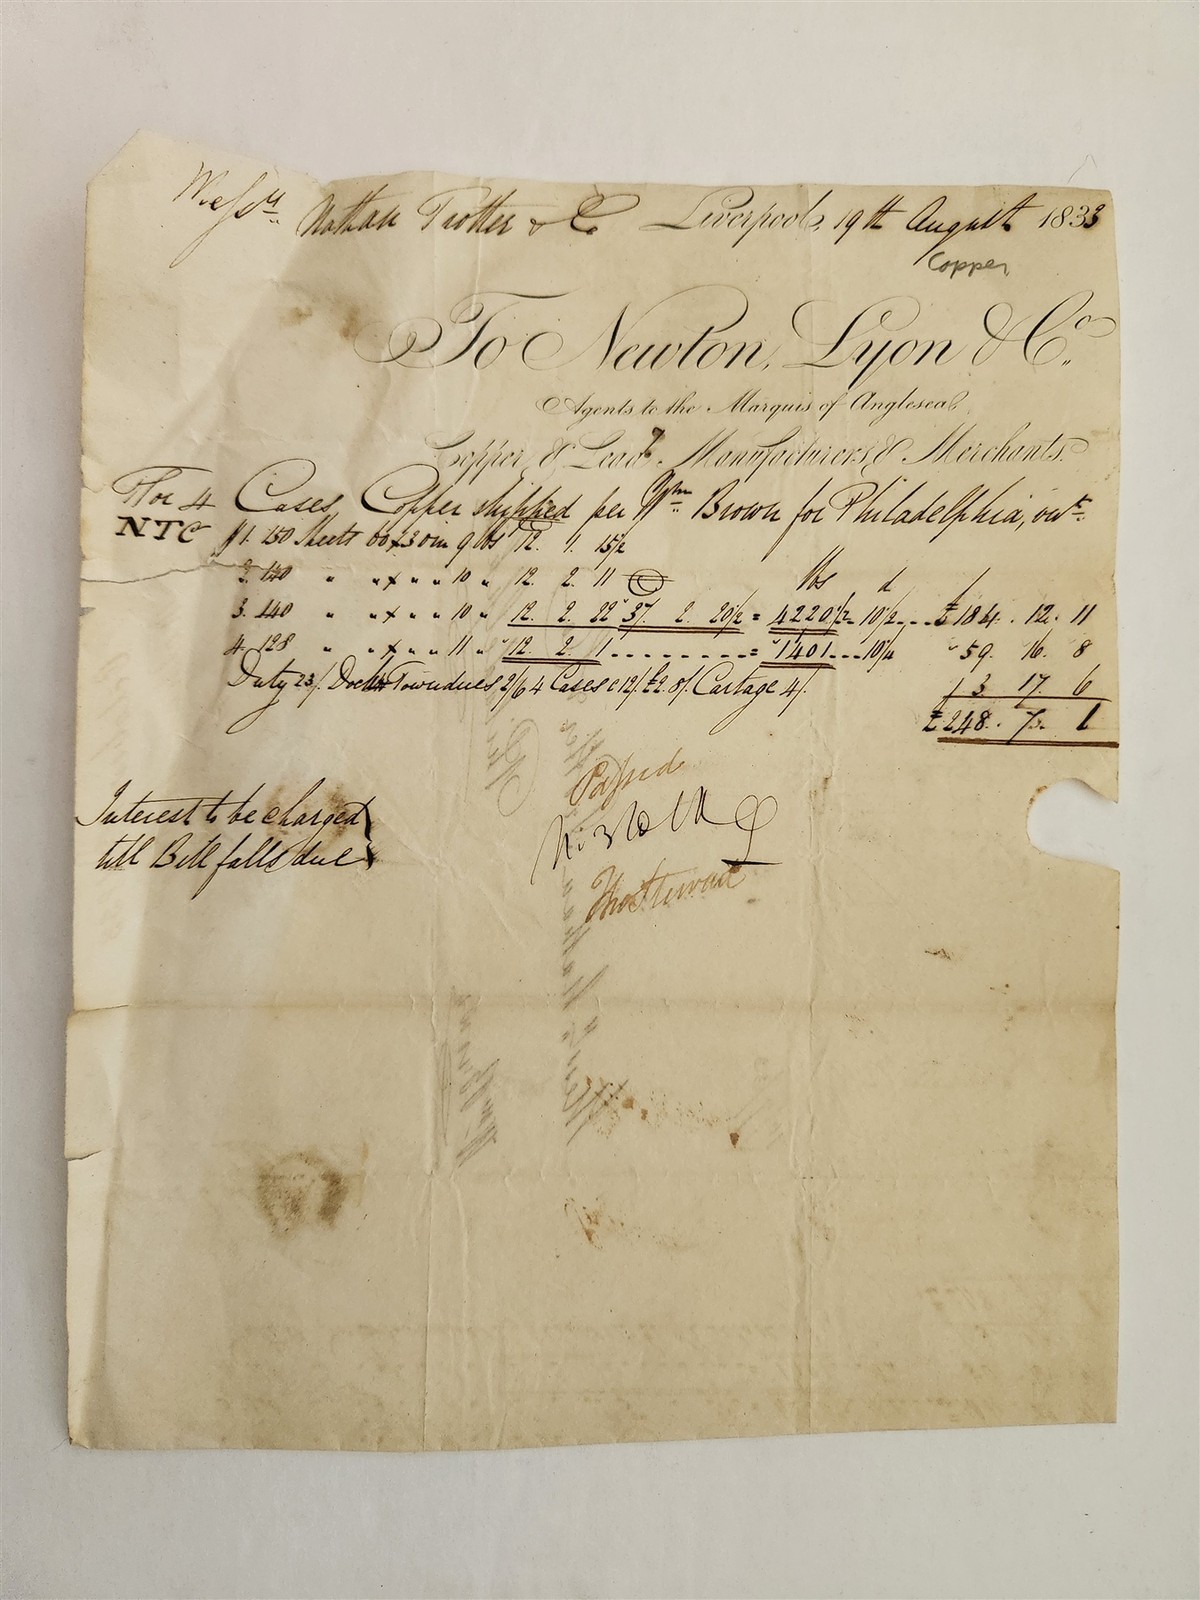 Messrs. Nathan Trotter & Co Liverpool, 19th August 1833
Copper
To Newton, Lyon & Co.
Agents to the Marquis of Anglesea
Copper & Lead Manufacturers & Merchants.
For 4 Cases Copper shipped per Wm. Brown for Philadelphia, viz.
NTCo #1. 150 Sheets 60 x 30 in 9 lbs 12. 1. 15½
2. 140 " " x " " 10 " 12. 2. 11 lbs d
3. 140 " " x " " 10 " 12. 2. 22 " 37. 2. 20½ = 4220½ - 10½ - - £184. 12. 11
4. 128 " " x " " 11 " 12. 2. 1 - - - - - - - - = 1401 - - - 10¼ " 59. 16. 8
Duty 23/. Dock & Towndues 2/6 4 Cases @ 12/. £2.8/. Cartage 4/. 3. 17. 6
£248. 7. 1
Interest to be charged
till Bill falls due